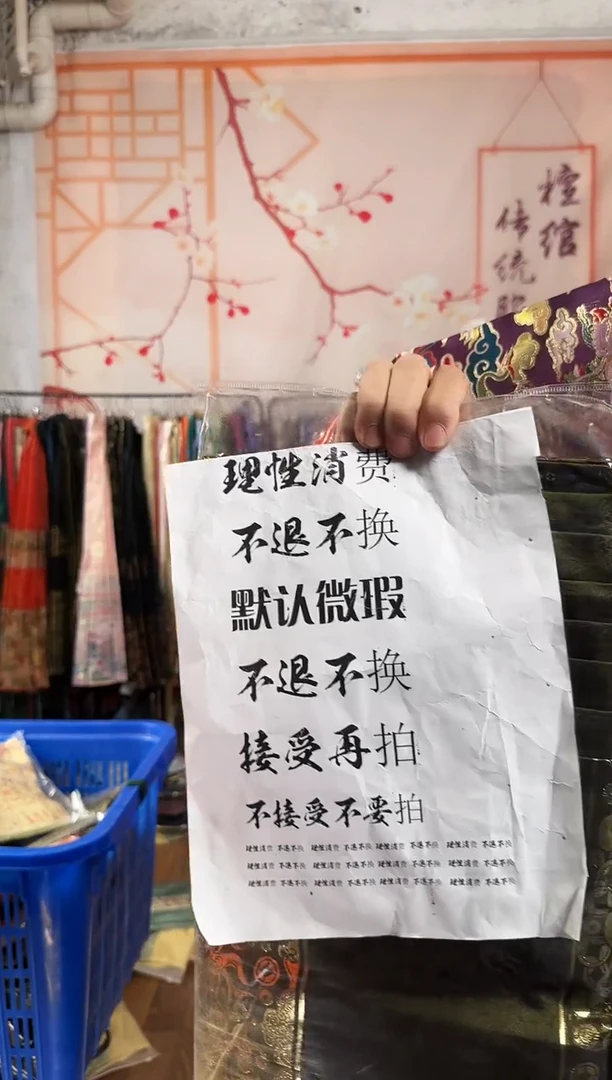 檀绾
传统服
理性消费
不退不换
默认微瑕
不退不换
接受再拍
不接受不要拍
理性消费 不退不换 理性消费 不退不换 理性消费 不退不换 理性消费 不退不换
理性消费 不退不换 理性消费 不退不换 理性消费 不退不换 理性消费 不退不换
理性消费 不退不换 理性消费 不退不换 理性消费 不退不换 理性消费 不退不换